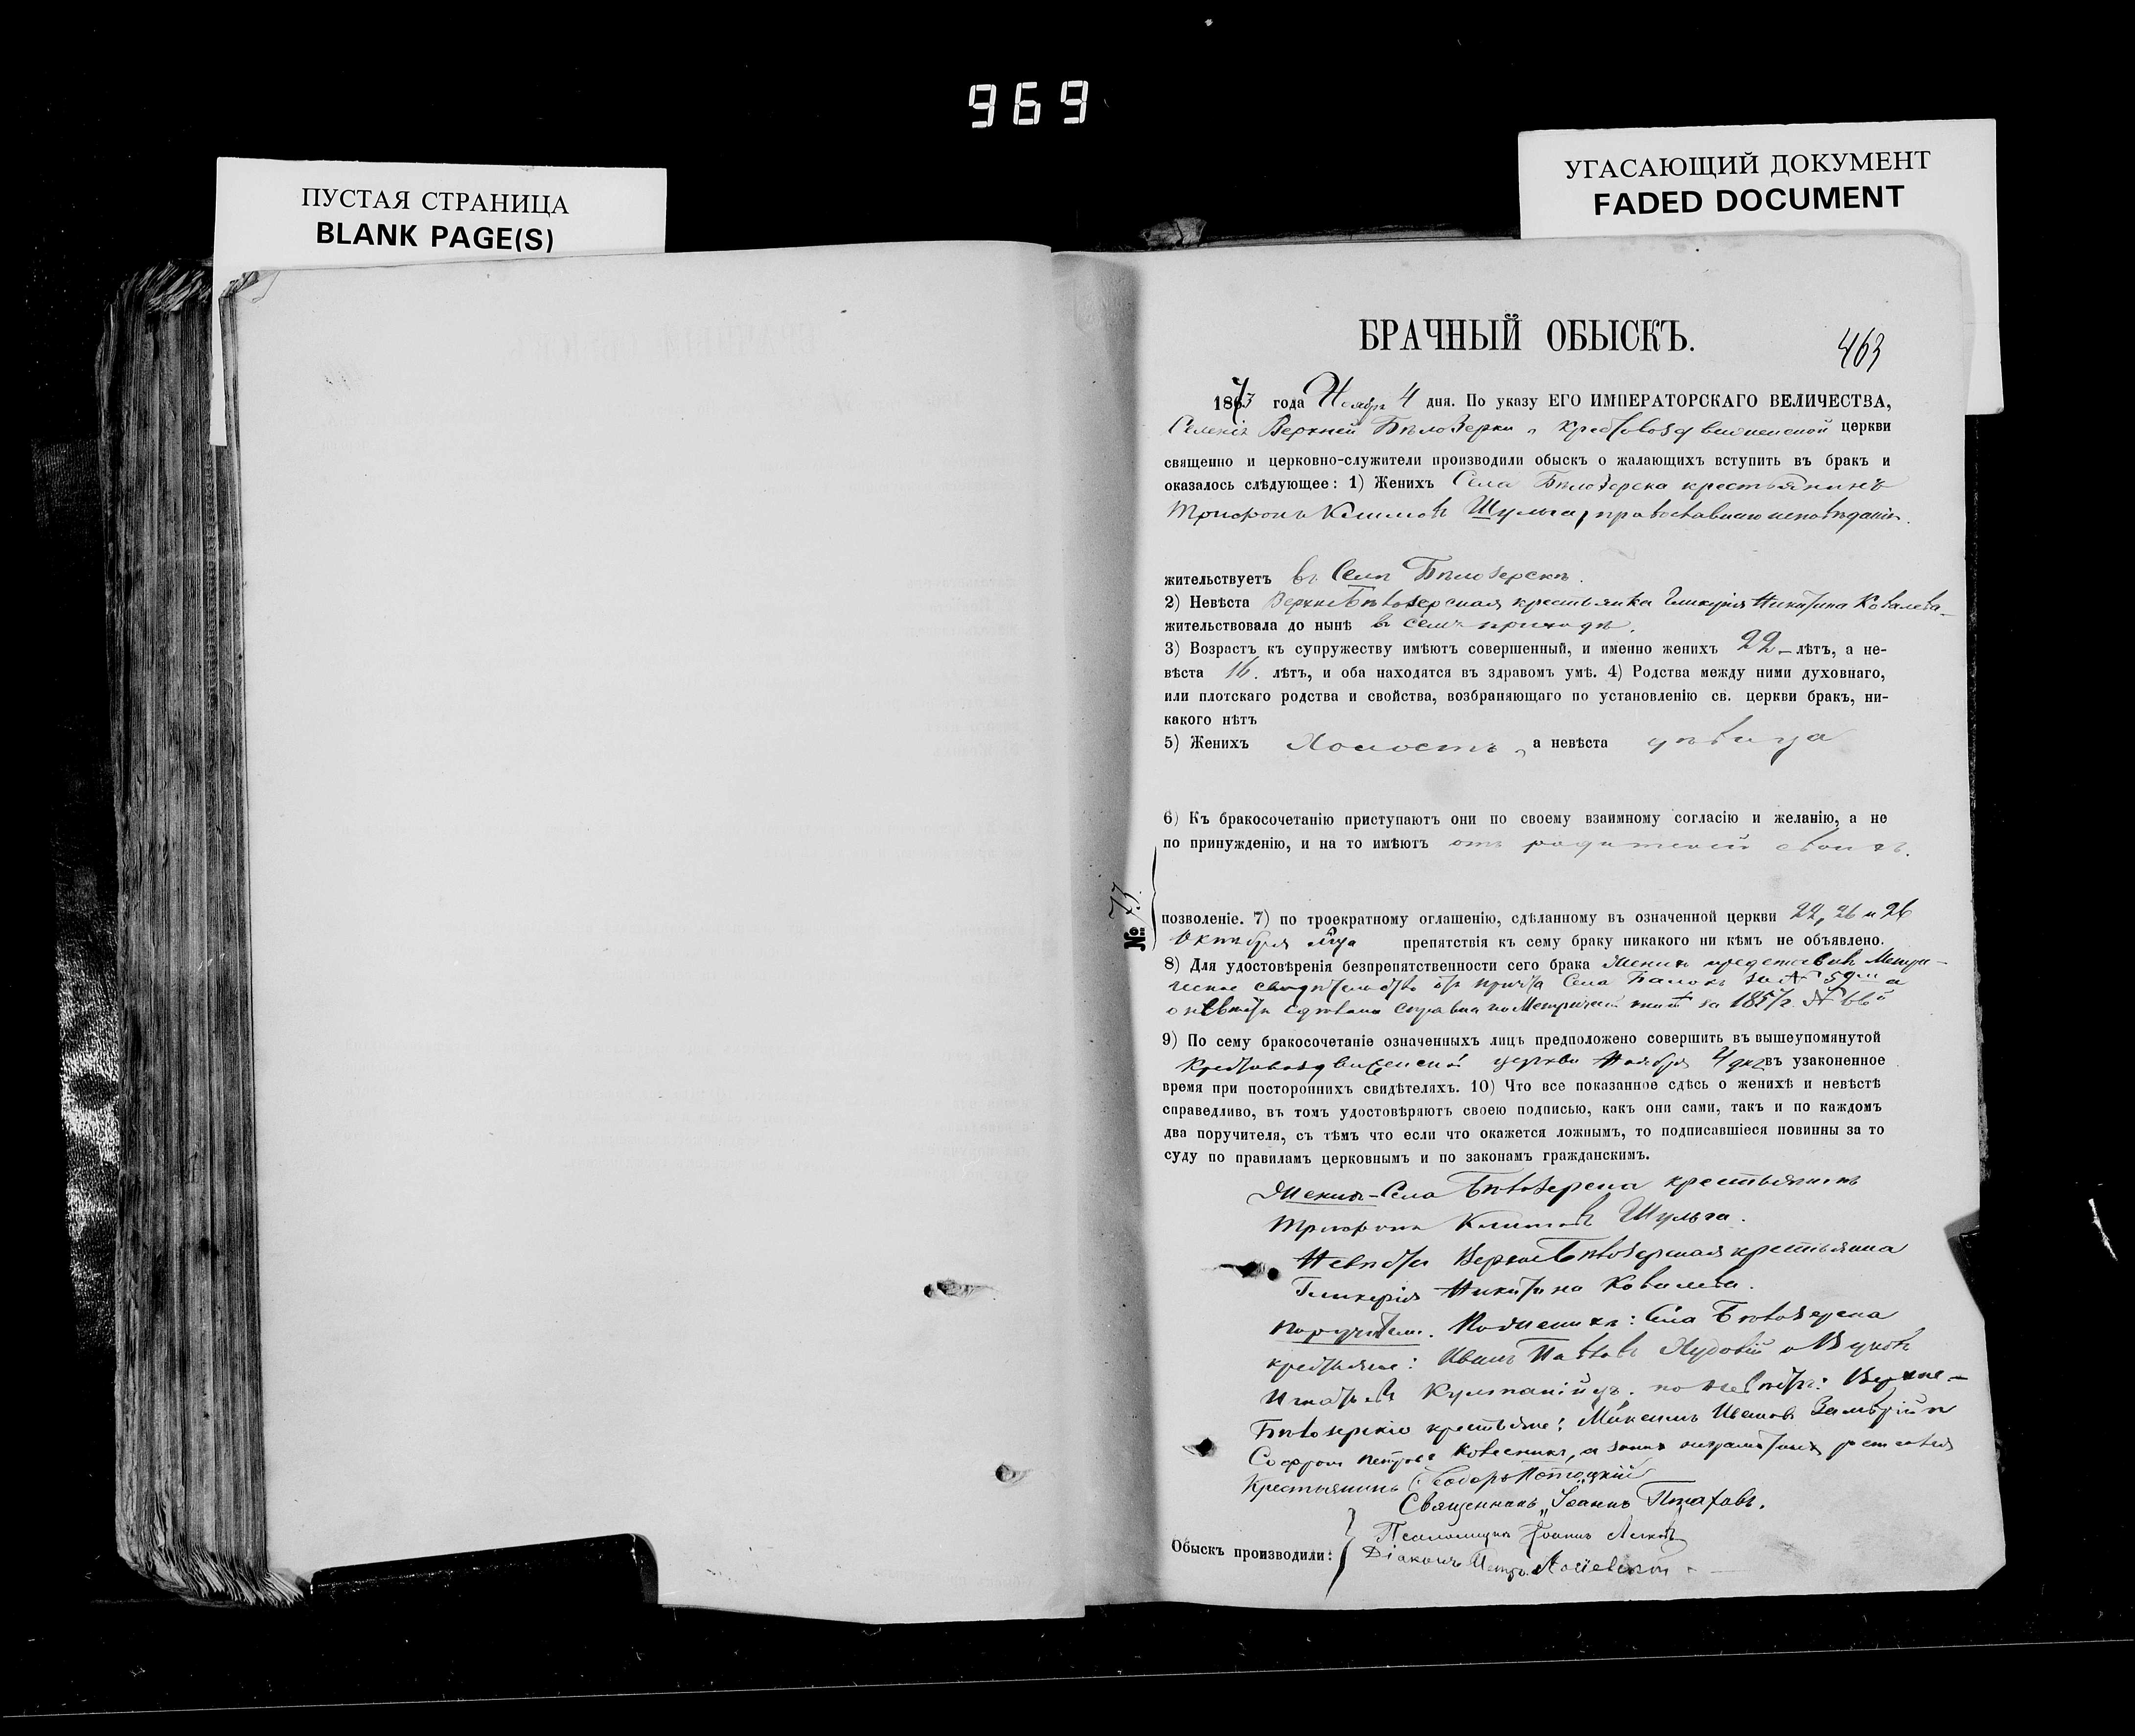 969
ПУСТАЯ СТРАНИЦА
BLANK PAGE(S)
УГАСАЮЩИЙ ДОКУМЕНТ
FADED DOCUMENT
БРАЧНЫЙ ОБЫСКЪ.
463
1873 года Ноября 4 дня. По указу ЕГО ИМПЕРАТОРСКАГО ВЕЛИЧЕСТВА,
Селенія Верхней Бѣлозерки, Крестовоздвиженской церкви
священно и церковно-служители производили обыскъ о жалающихъ вступить въ бракъ и
оказалось слѣдующее: 1) Женихъ Села Бѣлозерска крестьянинъ
Трифонъ Климовъ Шульга, православнаго исповѣданія.
жительствуетъ въ Селѣ Бѣлозерскѣ.
2) Невѣста ВерхнеБѣлозерская крестьянка Гликерія Никитина Ковалева
жительствовала до нынѣ въ семъ приходѣ.
3) Возрастъ къ супружеству имѣютъ совершенный, и именно женихъ 22 лѣтъ, а не-
вѣста 16. лѣтъ, и оба находятся въ здравомъ умѣ. 4) Родства между ними духовнаго,
или плотскаго родства и свойства, возбраняющаго по установленію св. церкви бракъ, ни-
какого нѣтъ
5) Женихъ Холостъ, а невѣста дѣвица
6) Къ бракосочетанію приступаютъ они по своему взаимному согласію и желанію, а не
по принужденію, и на то имѣютъ отъ родителей своихъ.
№ 73.
позволеніе. 7) по троекратному оглашенію, сдѣланному въ означенной церкви 22, 26 и 26
Октября м̃ца препятствія къ сему браку никакого ни кѣмъ не объявлено.
8) Для удостовѣренія безпрепятственности сего брака Женихъ представилъ Метри-
ческое свидѣтельство отъ причта Села Балокъ за № 59 а
о невѣстѣ сдѣлана справка по Метрической книгѣ за 1857 г. № 66й
9) По сему бракосочетаніе означенныхъ лицъ предположено совершить въ вышеупомянутой
Крестовоздвиженской церкви Ноября 4 дня въ узаконенное
время при постороннихъ свидѣтеляхъ. 10) Что все показанное сдѣсь о женихѣ и невѣстѣ
справедливо, въ томъ удостовѣряютъ своею подписью, какъ они сами, такъ и по каждомъ
два поручителя, съ тѣмъ что если что окажется ложнымъ, то подписавшіеся повинны за то
суду по правиламъ церковнымъ и по законамъ гражданскимъ.
Женихъ-Села Бѣлозерска крестьянинъ
Трифонъ Климовъ Шульга.
Невѣста ВерхнеБѣлозерская крестьянка
Гликерія Никитина Ковалева.
Поручители. По женихѣ: Села Бѣлозерска
крестьяне: Иванъ Павловъ Худовій и
по невѣстѣ: Верхне-
Бѣлозерскіе крестьяне: Максимъ Ивановъ и
Софронъ Петровъ Колесникъ, а за нихъ неграмотныхъ
Крестьянинъ Ѳеодоръ Потоцкій
Священникъ Іоаннъ Птаховъ.
Псаломщикъ Іоаннъ
Обыскъ производили: Діаконъ Петръ